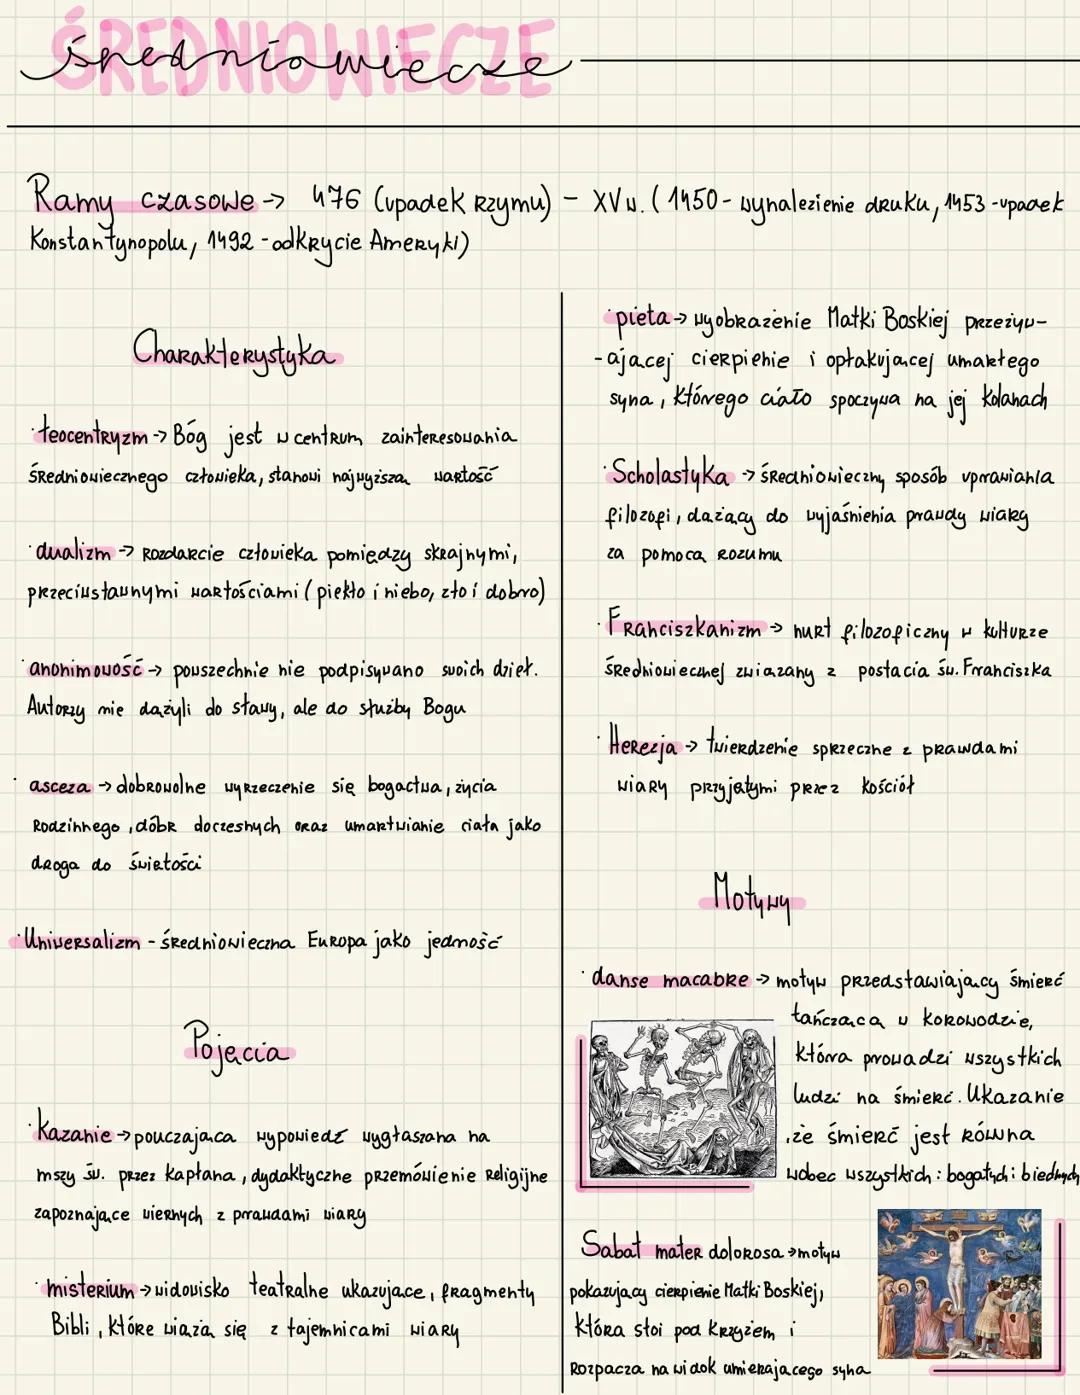 ŚREDNIOWIECZE
średniowiecze
Ramy czasowe → 476 (upadek Rzymu) - XV w. (1450 - wynalezienie druku, 1453 - upadek
Konstantynopolu, 1492 - odkrycie Ameryki)
Charakterystyka
· teocentryzm → Bóg jest w centrum zainteresowania
średniowiecznego człowieka, stanowi najwyższą wartość
· dualizm → rozdarcie człowieka pomiędzy skrajnymi,
przeciwstawnymi wartościami (piekło i niebo, zło i dobro)
· anonimowość → powszechnie nie podpisywano swoich dzieł.
Autorzy nie dążyli do sławy, ale do służby Bogu
· asceza → dobrowolne wyrzeczenie się bogactwa, życia
rodzinnego, dóbr doczesnych oraz umartwianie ciała jako
droga do świętości
· Uniwersalizm - średniowieczna Europa jako jedność
Pojęcia
· Kazanie → pouczająca wypowiedź wygłaszana na
mszy św. przez kapłana, dydaktyczne przemówienie religijne
zapoznające wiernych z prawdami wiary
· misterium → widowisko teatralne ukazujące, fragmenty
Bibli, które wiążą się z tajemnicami wiary
· pieta → wyobrażenie Matki Boskiej przeżyw-
-ającej cierpienie i opłakującej umarłego
syna, którego ciało spoczywa na jej kolanach
· Scholastyka → średniowieczny sposób uprawiania
filozofi, dążący do wyjaśnienia prawdy wiary
za pomocą rozumu
· Franciszkanizm → nurt filozoficzny w kulturze
średniowiecznej związany z postacią św. Franciszka
· Herezja → twierdzenie sprzeczne z prawdami
wiary przyjętymi przez kościół
Motywy
· danse macabre → motyw przedstawiający śmierć
tańczącą w korowodzie,
która prowadzi wszystkich
ludzi na śmierć. Ukazanie
,że śmierć jest równa
wobec wszystkich : bogatych i biednych
Sabat mater dolorosa → motyw
pokazujący cierpienie Matki Boskiej,
która stoi pod krzyżem i
rozpacza na widok umierającego syna